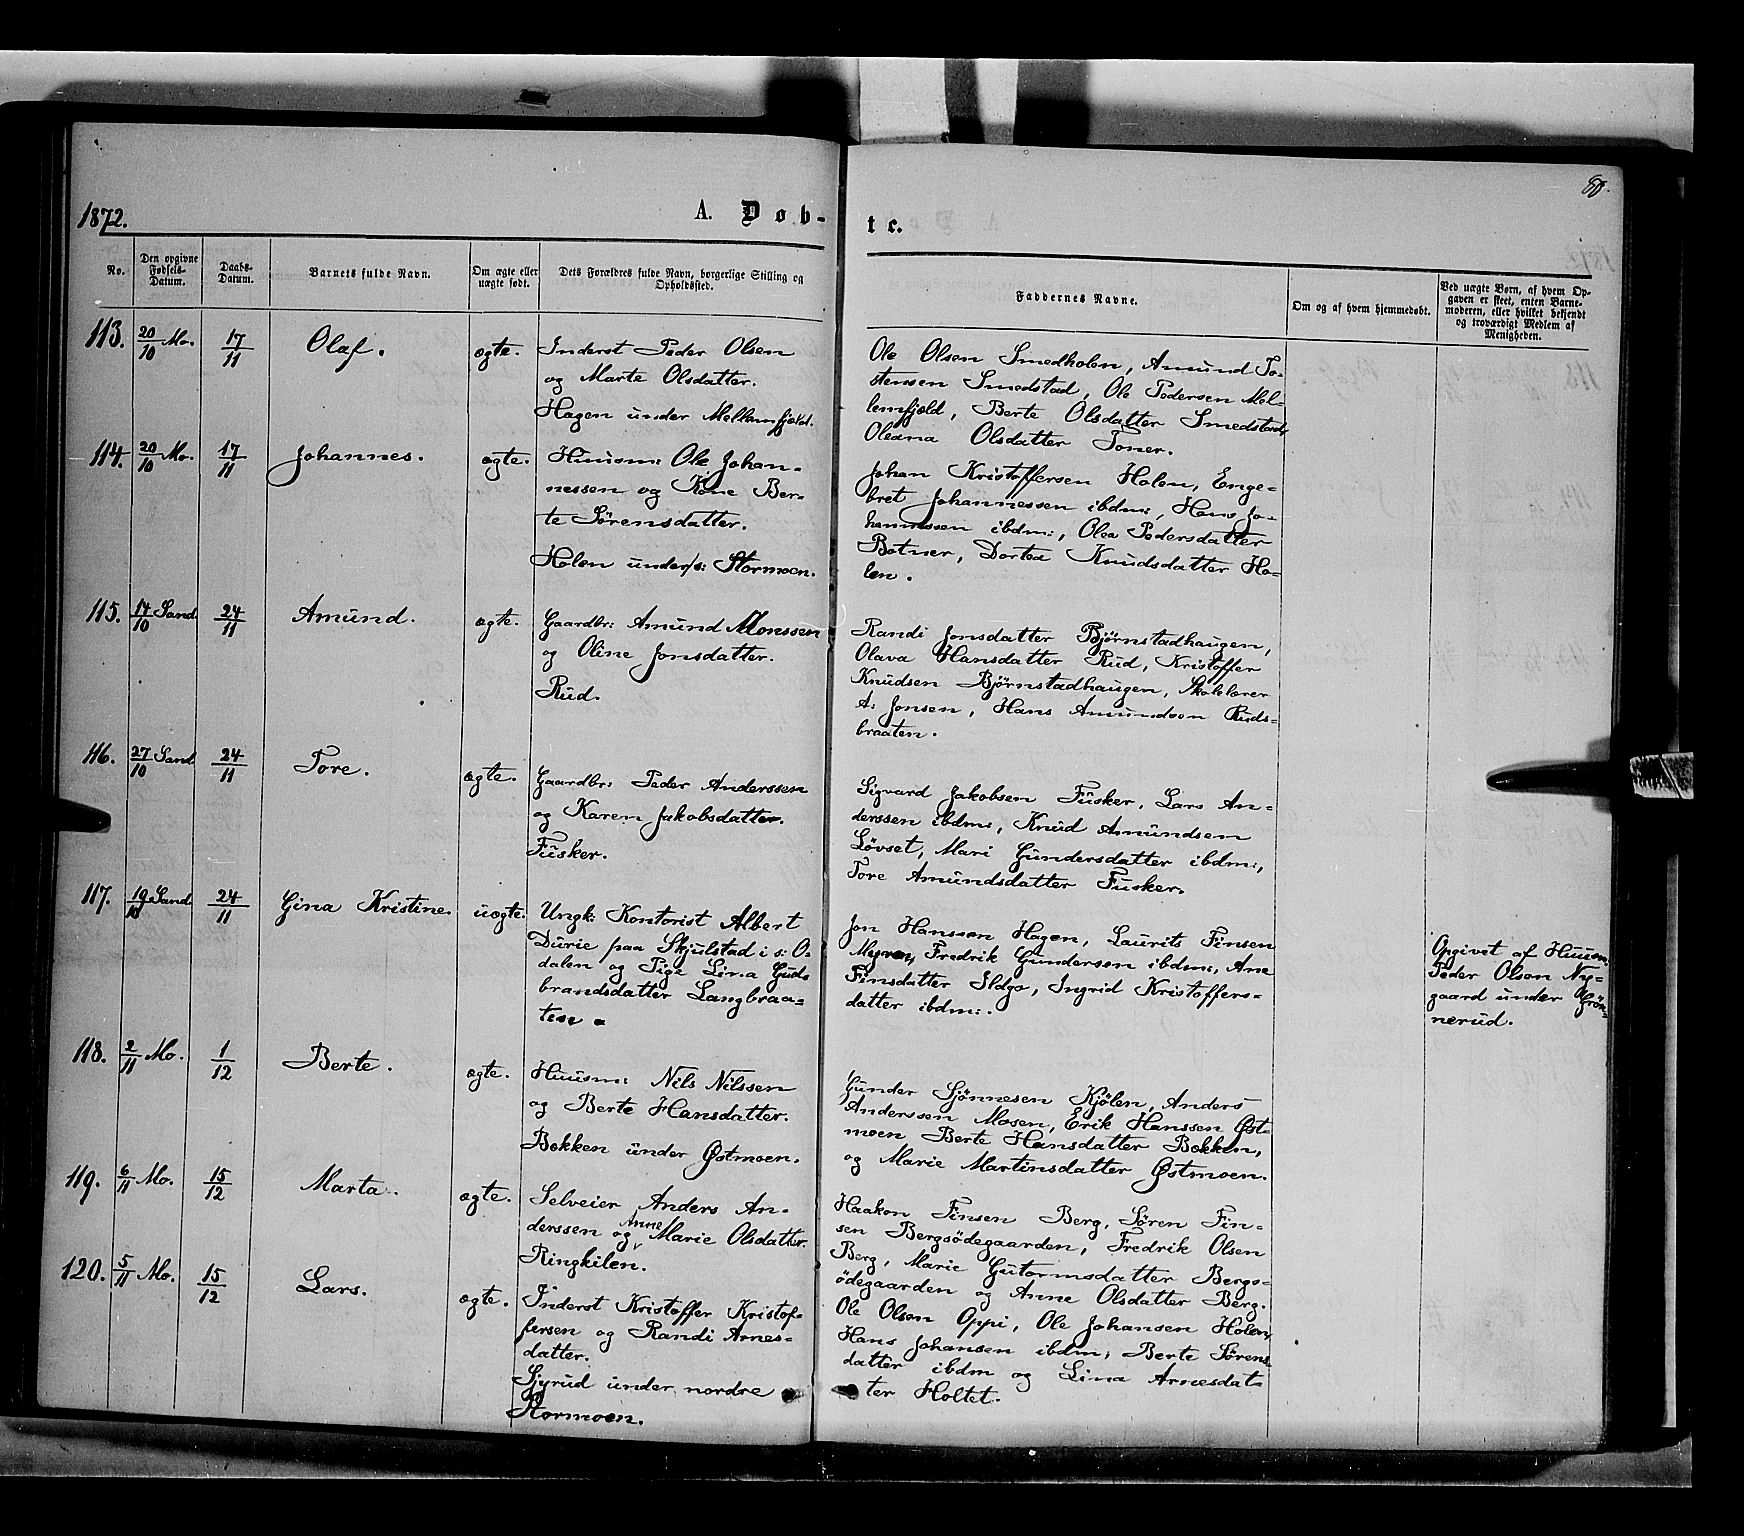 88.
1872.
A. Døb-
te.
No.
Den opgivne Fødsels-Datum.
Daabs-Datum.
Barnets fulde Navn.
Om ægte eller uægte født.
Dets Forældres fulde Navn, borgerlige Stilling og Opholdssted.
Faddernes Navne.
Om og af hvem hjemmedøbt.
Ved uægte Børn, af hvem Opgaven er skeet, enten Barnemoderen, eller hvilket bekjendt og troværdigt Medlem af Menigheden.
113. 20/10 Mo. 17/11 Olaf. ægte.
Inderst Peder Olsen
og Marte Olsdatter.
Hagen under Mellemfjeld.
Ole Olsen Smedholen, Amund To-
stensen Smedstad, Ole Pedersen Mel-
lemfjeld, Berte Olsdatter Smedstad,
Oleana Olsdatter Toner.
114. 20/10 Mo. 17/11 Johannes. ægte.
Huusm: Ole Johan-
nessen og Kone Ber-
te Sørensdatter.
Holen under s: Stormoen.
Johan Kristoffersen Holen, Enge-
bret Johannessen ibdm:, Hans Jo-
hannessen ibdm:, Olea Pedersdatter
Botner, Dortea Knudsdatter Ho-
len.
115. 14/10 Sand 24/11 Amund. ægte.
Gaardbr: Amund Monssen
og Oline Jonsdatter.
Rud.
Randi Jonsdatter Bjørnstadhaugen,
Olava Hansdatter Rud, Kristoffer
Knudsen Bjørnstadhaugen, Skolelærer
A: Jonsen, Hans Amundsen Ruds-
braaten.
116. 27/10 Sand 24/11 Tore. ægte.
Gaardbr: Peder Anderssen
og Karen Jakobsdatter.
Fusker.
Sigvard Jakobsen Fusker, Lars An-
derssen ibdm:, Knud Amundsen
Løvset, Mari Gundersdatter ibdm:,
Tore Amundsdatter Fusker.
117. 19/10 Sand 24/11 Gina Kristine. uægte.
Ungk: Kontorist Albert
Durie paa Skjulstad i s: O-
dalen og Pige Lina Gud-
brandsdatter Langbraa-
ten.
Jon Hanssen Hagen, Laurits Finsen
Myren, Fredrik Gundersen ibdm:, Ane
Finsdatter, Ingrid Kristoffers-
datter ibdm:.
Opgivet af Huusm.
Peder Olsen Ny-
gaard under Grøn-
nerud.
118. 2/11 Mo. 1/12 Berte. ægte.
Huusm: Nils Nilssen
og Berte Hansdatter.
Bekken under Østmoen.
Gunder Sjønnesen Kjølen, Anders
Anderssen Mosen, Erik Hanssen Øst-
moen Berte Hansdatter Bekken,
og Marie Martinsdatter Østmoen.
119. 6/11 Mo. 15/12 Marta. ægte.
Selveier Anders An-
derssen og Anne Marie Olsdatter.
Ringkilen.
Haakon Finsen Berg, Søren Fin-
sen Bergsødegaarden, Fredrik Olsen
Berg, Marie Gutormsdatter Bergs-
ødegaarden og Anne Olsdatter Berg.
120. 5/11 Mo. 15/12 Lars. ægte.
Inderst Kristoffer Kristof-
fersen og Randi Arnes-
datter.
Sjyrud under nordre
Stormoen.
Ole Olsen Oppi, Ole Johansen Holen,
Hans Johansen ibdm; Berte Sørens
datter ibdm og Lina Arnesdat-
ter Holtet.